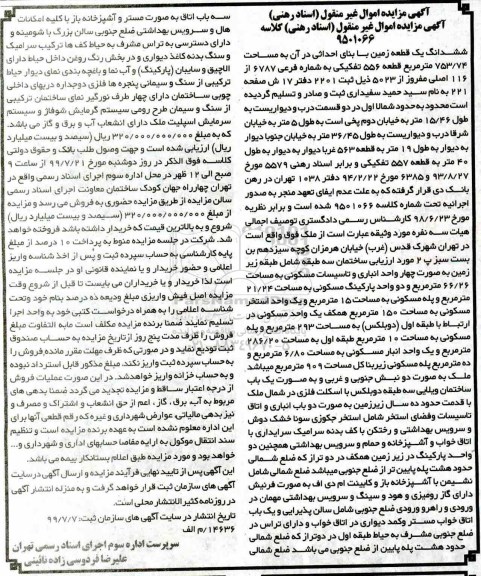 آگهی مزایده اموال غیر منقول (اسناد رهنی)
آگهی مزایده اموال غیر منقول (اسناد رهنی) کلاسه
۹۵۰۱۰۶۶
ششدانگ یک قطعه زمین با بنای احداثی در آن به مساحت
۷۵۳/۷۴ مترمربع قطعه ۵۵۶ تفکیکی به شماره فرعی ۶۷۸۷ از
۱۱۶ اصلی مفروز از ۵۰۲۳ ذیل ثبت ۲۲۰۱ دفتر ۱۷ ش صفحه
۲۲۱ به نام سید حمید سفیداری ثبت و صادر و تسلیم گردیده
است محدود به حدود شمالا اول در دو قسمت درب و دیواریست به
طول ۱۵/۴۶ متر به خیابان دوم پخی است به طول ۵ متر به خیابان
شرقا درب و دیواریست به طول ۳۶/۴۵ متر به خیابان جنوبا دیوار
به دیوار به طول ۱۹ متر به قطعه ۵۶۳ غربا دیوار به دیوار به طول
۴۰ متر به قطعه ۵۵۷ تفکیکی و برابر اسناد رهنی ۵۵۷۹ مورخ
۹۳/۸/۲۷ و ۶۳۸۵ مورخ ۹۴/۲/۲۲ دفتر ۱۰۳۸ تهران در رهن
بانک دی قرار گرفته که به علت عدم ایفای تعهد منجر به صدور
اجرائیه تحت شماره کلاسه ۹۵۰۱۰۶۶ شده است و برابر نظریه
مورخ ۹۸/۶/۲۳ کارشناس رسمی دادگستری توصیف اجمالی
هیات سه نفره مورد وثیقه عبارت است از ملک فوق واقع است
در تهران شهرک قدس (غرب) خیابان هرمزان کوچه سیزدهم بن
بست سبز پ ۲ مورد ارزیابی ساختمان سه طبقه شامل طبقه زیر
زمین به صورت چهار واحد انباری و تاسیسات مسکونی به مساحت
۶۶/۲۶ مترمربع و دو واحد پارکینگ مسکونی به مساحت ۲۱/۲۴
مترمربع و پله مسکونی به مساحت ۱۵ مترمربع و یک واحد استخر
مسکونی به مساحت ۱۵۰ مترمربع همکف یک واحد مسکونی در
ارتباط با طبقه اول (دوبلکس) به مساحت ۲۹۳ مترمربع و پله
مسکونی به مساحت ۱۰ مترمربع طبقه اول به مساحت ۲۸۶/۲۰
مترمربع و یک واحد انبار مسکونی به مساحت ۶/۸۰ مترمربع و
ده مترمربع پله مسکونی زیربنا کل مساحت ۹۰۹ مترمربع میباشد
ملک به صورت دو نبش جنوبی و غربی و به صورت یک باب
ساختمان ویلایی سه طبقه دوبلکس با اسکلت فلزی در شمال ملک
با قدمت حدود ده سال زیرزمین به صورت دو باب انباری و اتاق
تاسیسات وفضای استخر شامل استخر جکوزی سونا خشک دوش
و سرویس بهداشتی و رختکن با کف بدنه سرامیک سرایداری با
اتاق خواب و آشپزخانه و حمام و سرویس بهداشتی همچنین دو
واحد پارکینگ در زیر زمین همکف در دو تراز که ضلع شمالی
حدود هشت پله پایین تر از ضلع جنوبی میباشد ضلع شمالی شامل
نشیمن با آشپزخانه باز و کابینت ام دی اف به صورت فرنیش
دارای گاز رومیزی و هود و سینک و سرویس بهداشتی مهمان در
ورودی و راهرو ورودی ضلع جنوبی شامل سالن پذیرایی و یک باب
اتاق خواب مستر وکمد دیواری در اتاق خواب و دارای تراس در
ضلع جنوبی مشرف به حیاط طبقه اول در دوتراز که ضلع شمالی
حدود هشت پله پایین از ضلع جنوبی می باشد ضلع شمالی
سه باب اتاق به صورت مستر و آشپزخانه باز با کلیه امکانات
هال و سرویس بهداشتی ضلع جنوبی سالن بزرگ با شومینه و
دارای دسترسی به تراس مشرف به حیاط کف ها ترکیب سرامیک
و سنگ بدنه کاغذ دیواری و در بخش رنگ روغن داخل حیاط دارای
آلاچیق و سایبان (پارکینگ) و آب نما و باغچه بندی نمای دیوار حیاط
ترکیبی از سنگ و سیمانی پنجره ها فلزی دوجداره دربهای داخلی
چوبی ساختمان دارای چهار طرف نورگیر نمای ساختمان ترکیبی
از سنگ و سیمان طرح رومی سیستم گرمایش شوفاژ و سیستم
سرمایش اسپلیت ملک دارای انشعاب آب و برق و گاز می باشد.
که به مبلغ ۳۲۰/۰۰۰/۰۰۰/۰۰۰ ریال (سیصد و بیست میلیارد
ریال) ارزیابی شده است و جهت وصول طلب بانک و حقوق دولتی
کلاسه فوق الذکر در روز دوشنبه مورخ ۹۹/۷/۲۱ از ساعت ۹
صبح الی ۱۲ ظهر در محل اداره سوم اجرای اسناد رسمی واقع در
تهران چهارراه جهان کودک ساختمان معاونت اجرای اسناد رسمی
سالن مزایده از طریق مزایده حضوری به فروش می رسد و مزایده
از مبلغ ۳۲۰/۰۰۰/۰۰۰/۰۰۰ (سیصد و بیست میلیارد ریال)
شروع و به بالاترین قیمت که خریدار داشته باشد فروخته خواهد
شد. شرکت در جلسه مزایده منوط به پرداخت ۱۰ درصد از مبلغ
پایه کارشناسی به حساب سپرده ثبت و پس از اخذ شناسه واریز
اعلامی و حضور خریدار و یا نماینده قانونی او در جلسه مزایده
است لذا خریدار و یا خریداران می بایست تا قبل از شروع وقت
مزایده اصل فیش واریزی مبلغ ودیعه ده درصد بنام خود وتحت
شناسه اعلامی را به همراه درخواست کتبی خود به واحد اجرا
تسلیم نمایند ضمنا برنده مزایده مکلف است مابه التفاوت مبلغ
فروش را ظرف مدت پنج روز از تاریخ مزایده به حساب صندوق
ثبت تودیع نماید و در صورتی که ظرف مهلت مقرر مانده فروش را
به حساب سپرده ثبت واریز نکند، مبلغ مذکور قابل استرداد نبوده
و به حساب خزانه واریز خواهد شد. در این صورت عملیات فروش
از درجه اعتبار ساقط و مزایده تجدید می گردد ضمنا بدهی های
مربوط به آب، برق، گاز، اعم از حق انشعاب و اشتراک و مصرف و
نیز بدهی مالیاتی، عوارض شهرداری و غیره که رقم قطعی آنها برای
این اداره معلوم نشده است به عهده برنده مزایده است و تنظیم
سند انتقال موکول به ارایه مفاصا حسابهای اداری و شهرداری و...
خواهد بود و مورد مزایده طبق اعلام بستانکار بیمه می باشد.
این آگهی پس از تایید نهایی فرآیند مزایده و ارسال آگهی در سایت
آگهی های سازمان ثبت قرار خواهد گرفت و به منزله انتشار آگهی
در روزنامه کثیر الانتشار محلی است.
تاریخ انتشار در سایت آگهی های سازمان ثبت: ۹۹/۷/۷
۱۴۶۳۶/م الف
سرپرست اداره سوم اجرای اسناد رسمی تهران
علیرضا فردوسی زاده نائینی